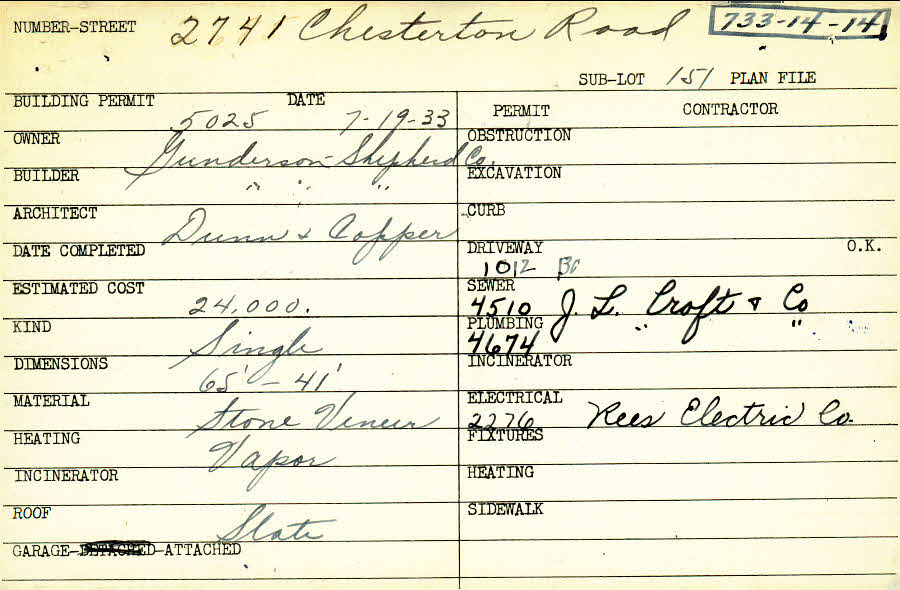 NUMBER-STREET 2741 Chesterton Road 733-14-14
SUB-LOT 151 PLAN FILE
BUILDING PERMIT 5025 DATE 7-19-33
OWNER Gunderson-Shepherd Co.
BUILDER " " "
ARCHITECT Dunn & Copper
DATE COMPLETED
ESTIMATED COST 24,000.
KIND Single
DIMENSIONS 65' - 41'
MATERIAL Stone Veneer
HEATING Vapor
INCINERATOR
ROOF Slate
GARAGE-DETACHED-ATTACHED
PERMIT CONTRACTOR
OBSTRUCTION
EXCAVATION
CURB
DRIVEWAY O.K.
1012
SEWER
4510 J. L. Croft & Co
PLUMBING
4674 " "
INCINERATOR
ELECTRICAL
2276 Rees Electric Co.
FIXTURES
HEATING
SIDEWALK